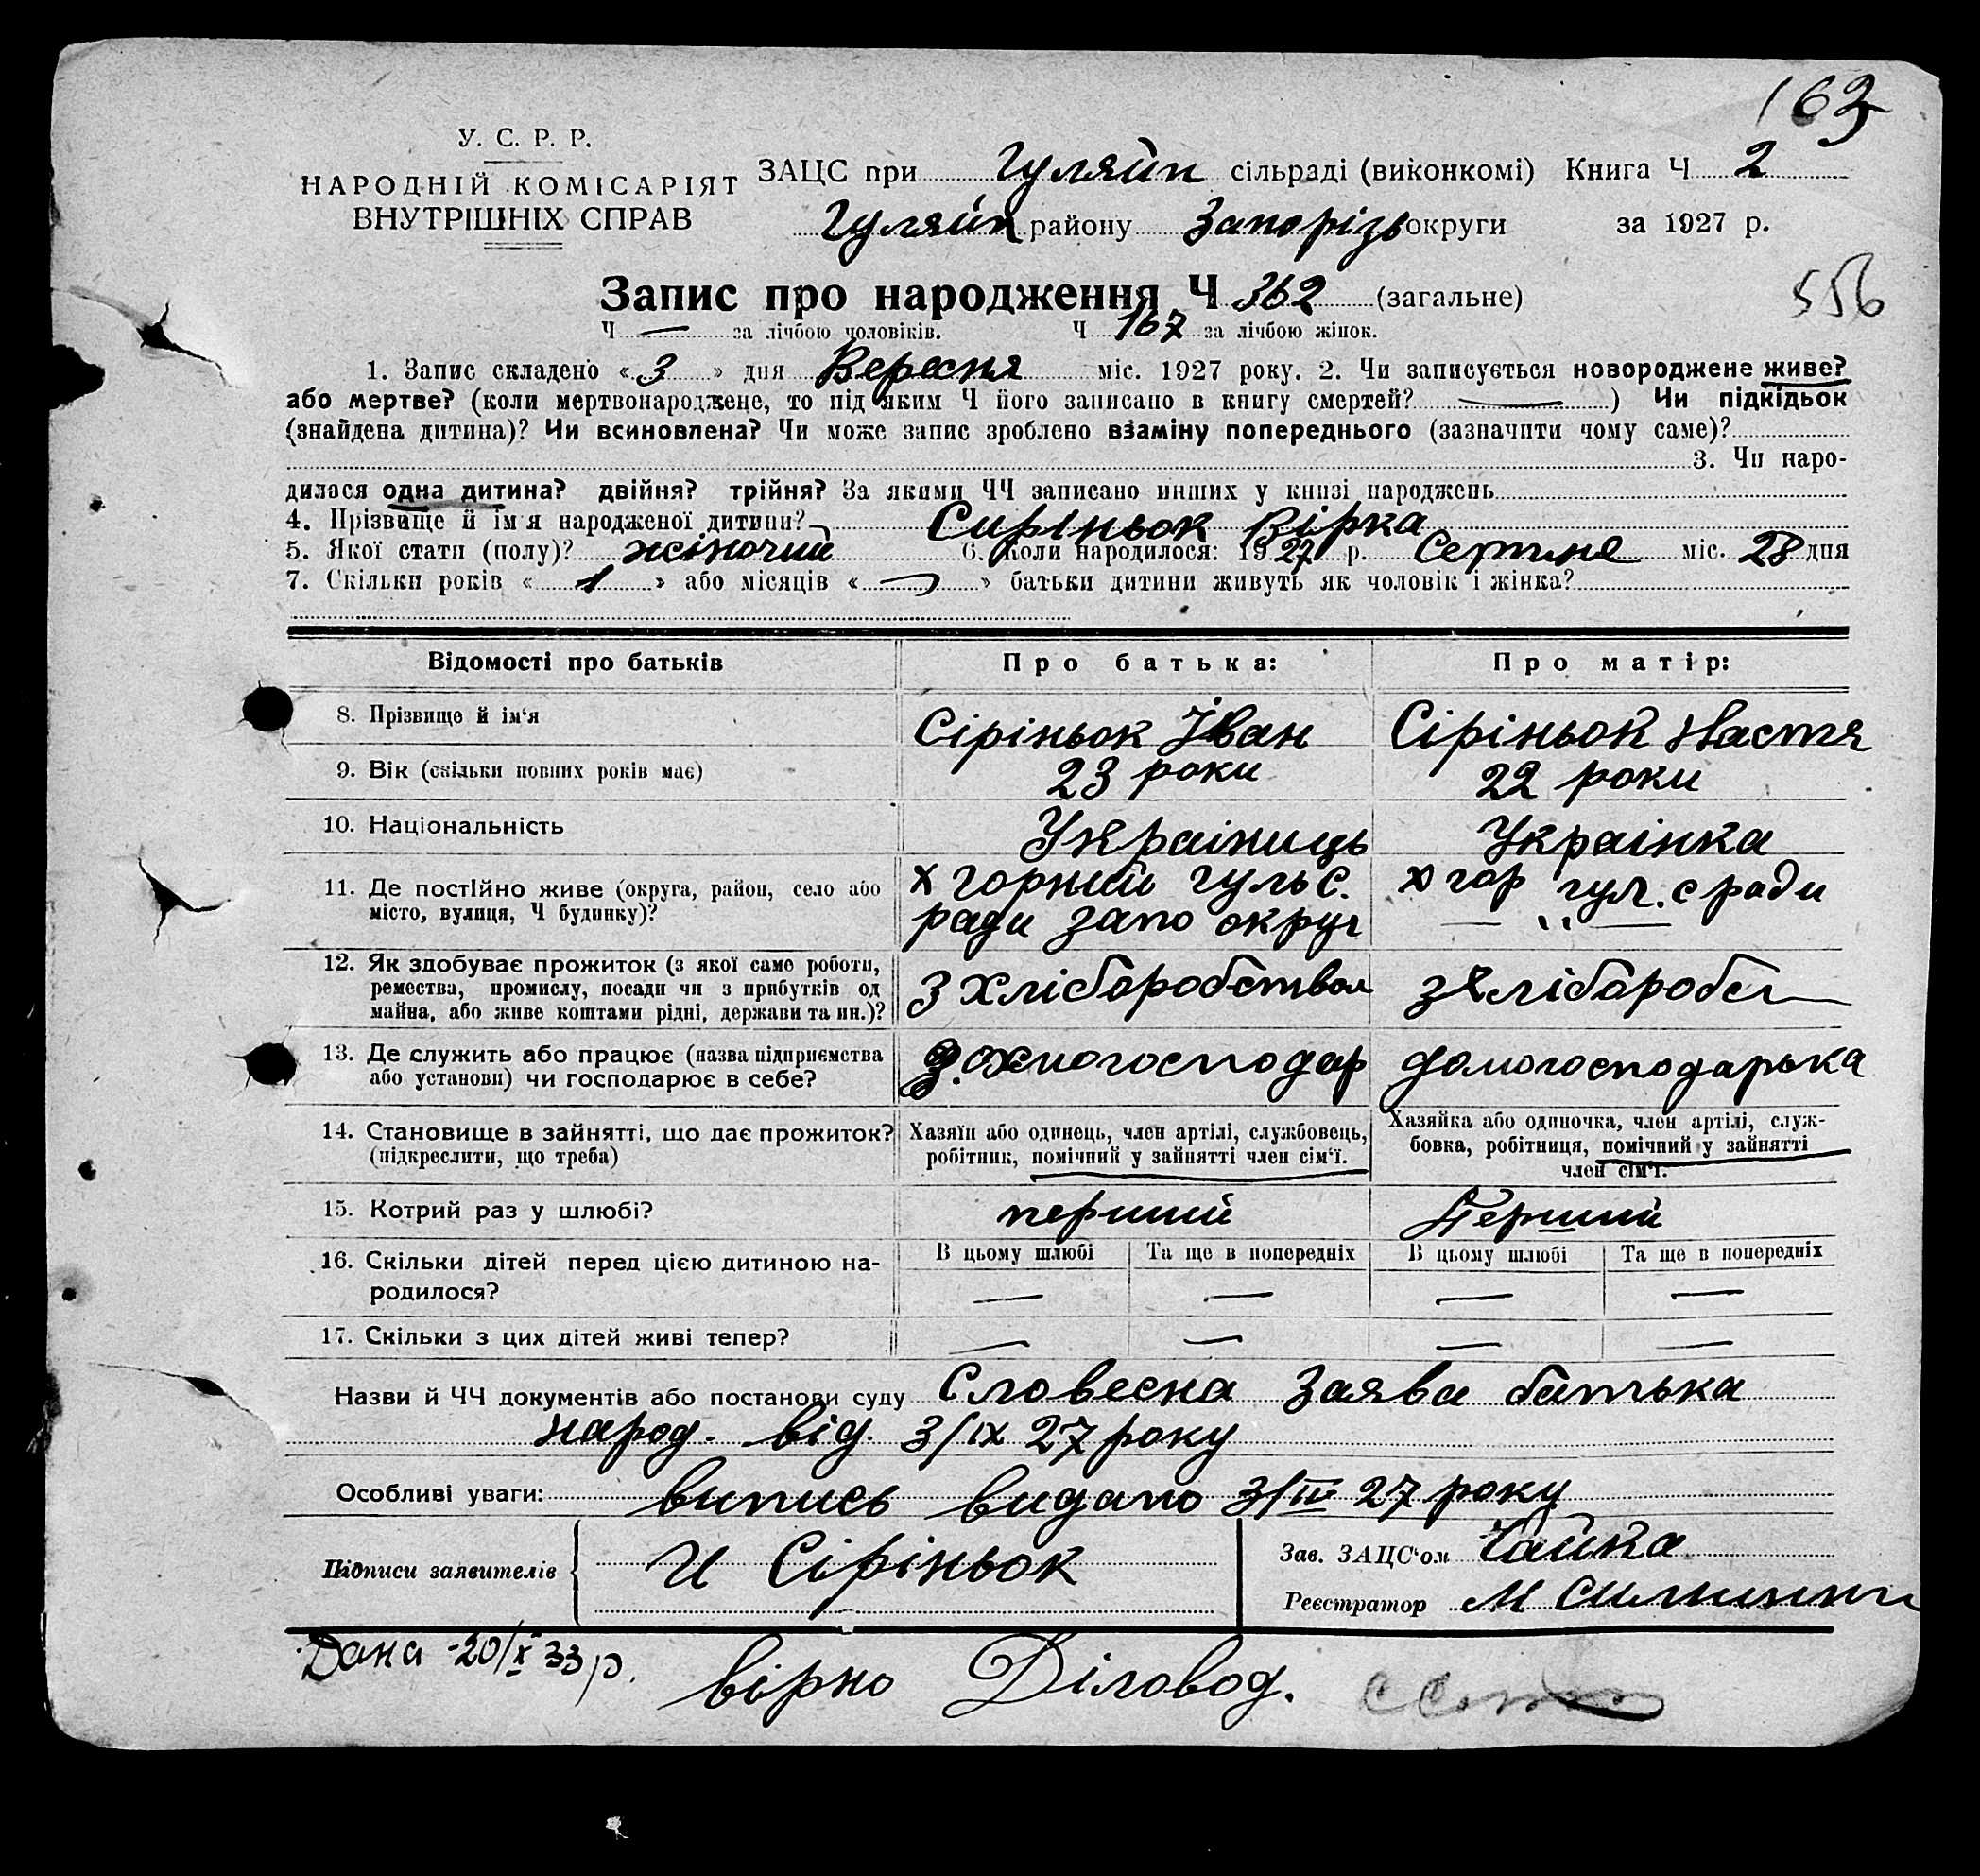 163
У. С. Р. Р.
НАРОДНІЙ КОМІСАРІЯТ
ВНУТРІШНІХ СПРАВ
ЗАЦС при Гуляйп сільраді (виконкомі) Книга Ч 2
Гуляйп району Запорізь округи за 1927 р.
556
Запис про народження Ч 362 (загальне)
Ч — за лічбою чоловіків. Ч 167 за лічбою жінок.
1. Запис складено «3» дня Вересня міс. 1927 року. 2. Чи записується новороджене живе?
або мертве? (коли мертвонароджене, то під яким Ч його записано в книгу смертей? —) Чи підкідьок
(знайдена дитина)? Чи всиновлена? Чи може запис зроблено взаміну попереднього (зазначити чому саме)?
3. Чи наро-
дилася одна дитина? двійня? трійня? За якими ЧЧ записано инших у книзі народжень
4. Прізвище й ім'я народженої дитини? Сиріньок Вірка
5. Якої стати (полу)? жіночий 6. Коли народилося: 1927 р. Серпня міс. 28 дня
7. Скільки років «1» або місяців «—» батьки дитини живуть як чоловік і жінка?
Відомості про батьків Про батька: Про матір:
8. Прізвище й ім'я Сіріньок Іван Сіріньок Настя
9. Вік (скільки повних років має) 23 роки 22 роки
10. Національність Украіниць Украінка
11. Де постійно живе (округа, район, село або х горний гуль с. х гор гул. с ради
місто, вулиця, Ч будинку)? ради запо округ — „ —
12. Як здобуває прожиток (з якої саме роботи,
ремества, промислу, посади чи з прибутків од З хліборобства з хлібороб
майна, або живе коштами рідні, держави та ин.)?
13. Де служить або працює (назва підприємства домогосподар домогосподарька
або установи) чи господарює в себе?
14. Становище в зайнятті, що дає прожиток? Хазяїн або одинець, член артілі, службовець, Хазяйка або одиночка, член артілі, служ-
(підкреслити, що треба) робітник, помічний у зайнятті член сім'ї. бовка, робітниця, помічний у зайнятті
член сім'ї.
15. Котрий раз у шлюбі? перший Перший
16. Скільки дітей перед цією дитиною на- В цьому шлюбі Та ще в попередніх В цьому шлюбі Та ще в попередніх
родилося? — — — —
17. Скільки з цих дітей живі тепер? — — — —
Назви й ЧЧ документів або постанови суду Словесна Заява батька
народ. від. 3/ІХ 27 року
Особливі уваги: випись видано 27 року
Підписи заявителів И Сіріньок Зав. ЗАЦС'ом Чайка
Реєстратор М
Дана 20/X 33 р. вірно Діловод.